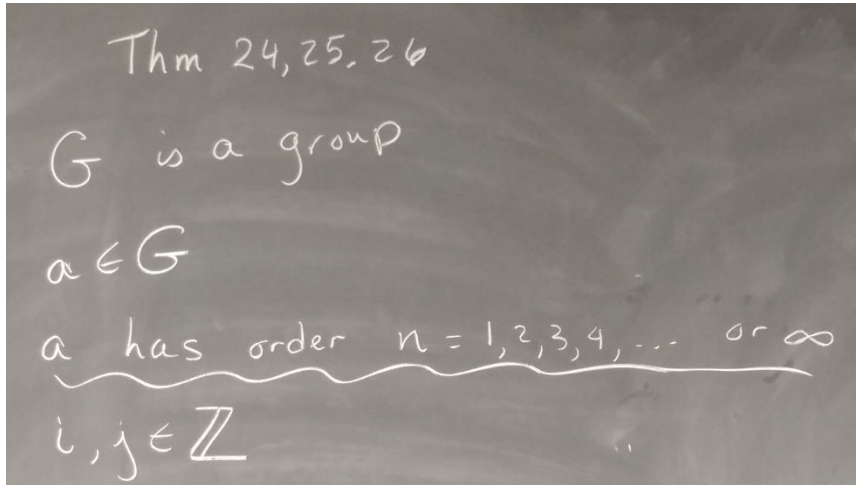 Thm 24, 25. 26
G is a group
a ∈ G
a has order n = 1, 2, 3, 4, ... or ∞
i, j ∈ ℤ